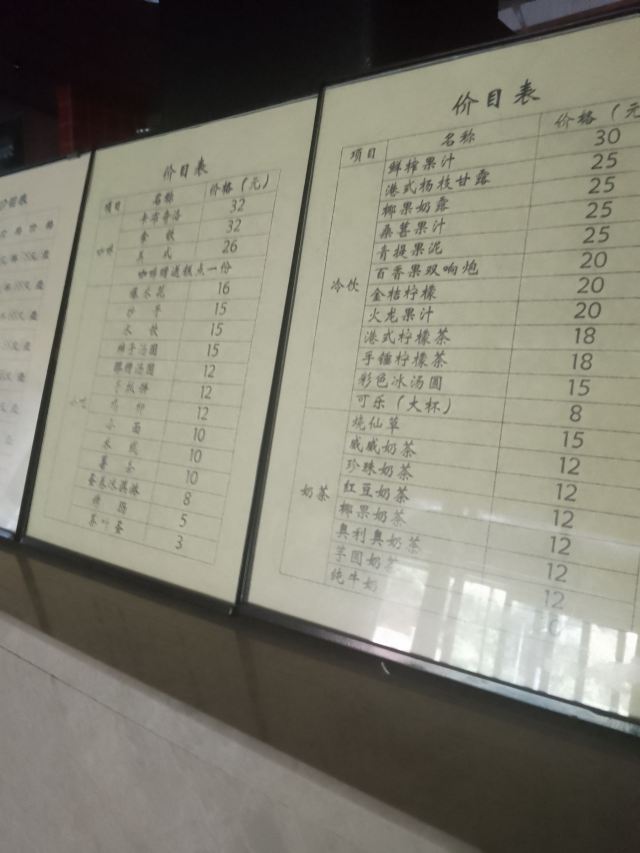 价目表
项目 名称 价格（元）
咖啡
卡布奇诺 32
拿铁 32
美式 26
咖啡赠送糕点一份
小吃
爆米花 16
抄手 15
水饺 15
汤圆 15
醪糟汤圆 12
手抓饼 12
12
小面 10
米线 10
薯条 10
蛋卷冰淇淋 8
烤肠 5
茶叶蛋 3
价目表
项目 名称 价格（元
冷饮
鲜榨果汁 30
港式杨枝甘露 25
椰果奶露 25
桑葚果汁 25
青提果泥 25
百香果双响炮 20
金桔柠檬 20
火龙果汁 20
港式柠檬茶 18
手锤柠檬茶 18
彩色冰汤圆 15
可乐（大杯） 8
奶茶
烧仙草 15
戚戚奶茶 12
珍珠奶茶 12
红豆奶茶 12
椰果奶茶 12
奥利奥奶茶 12
芋圆奶茶 12
纯牛奶